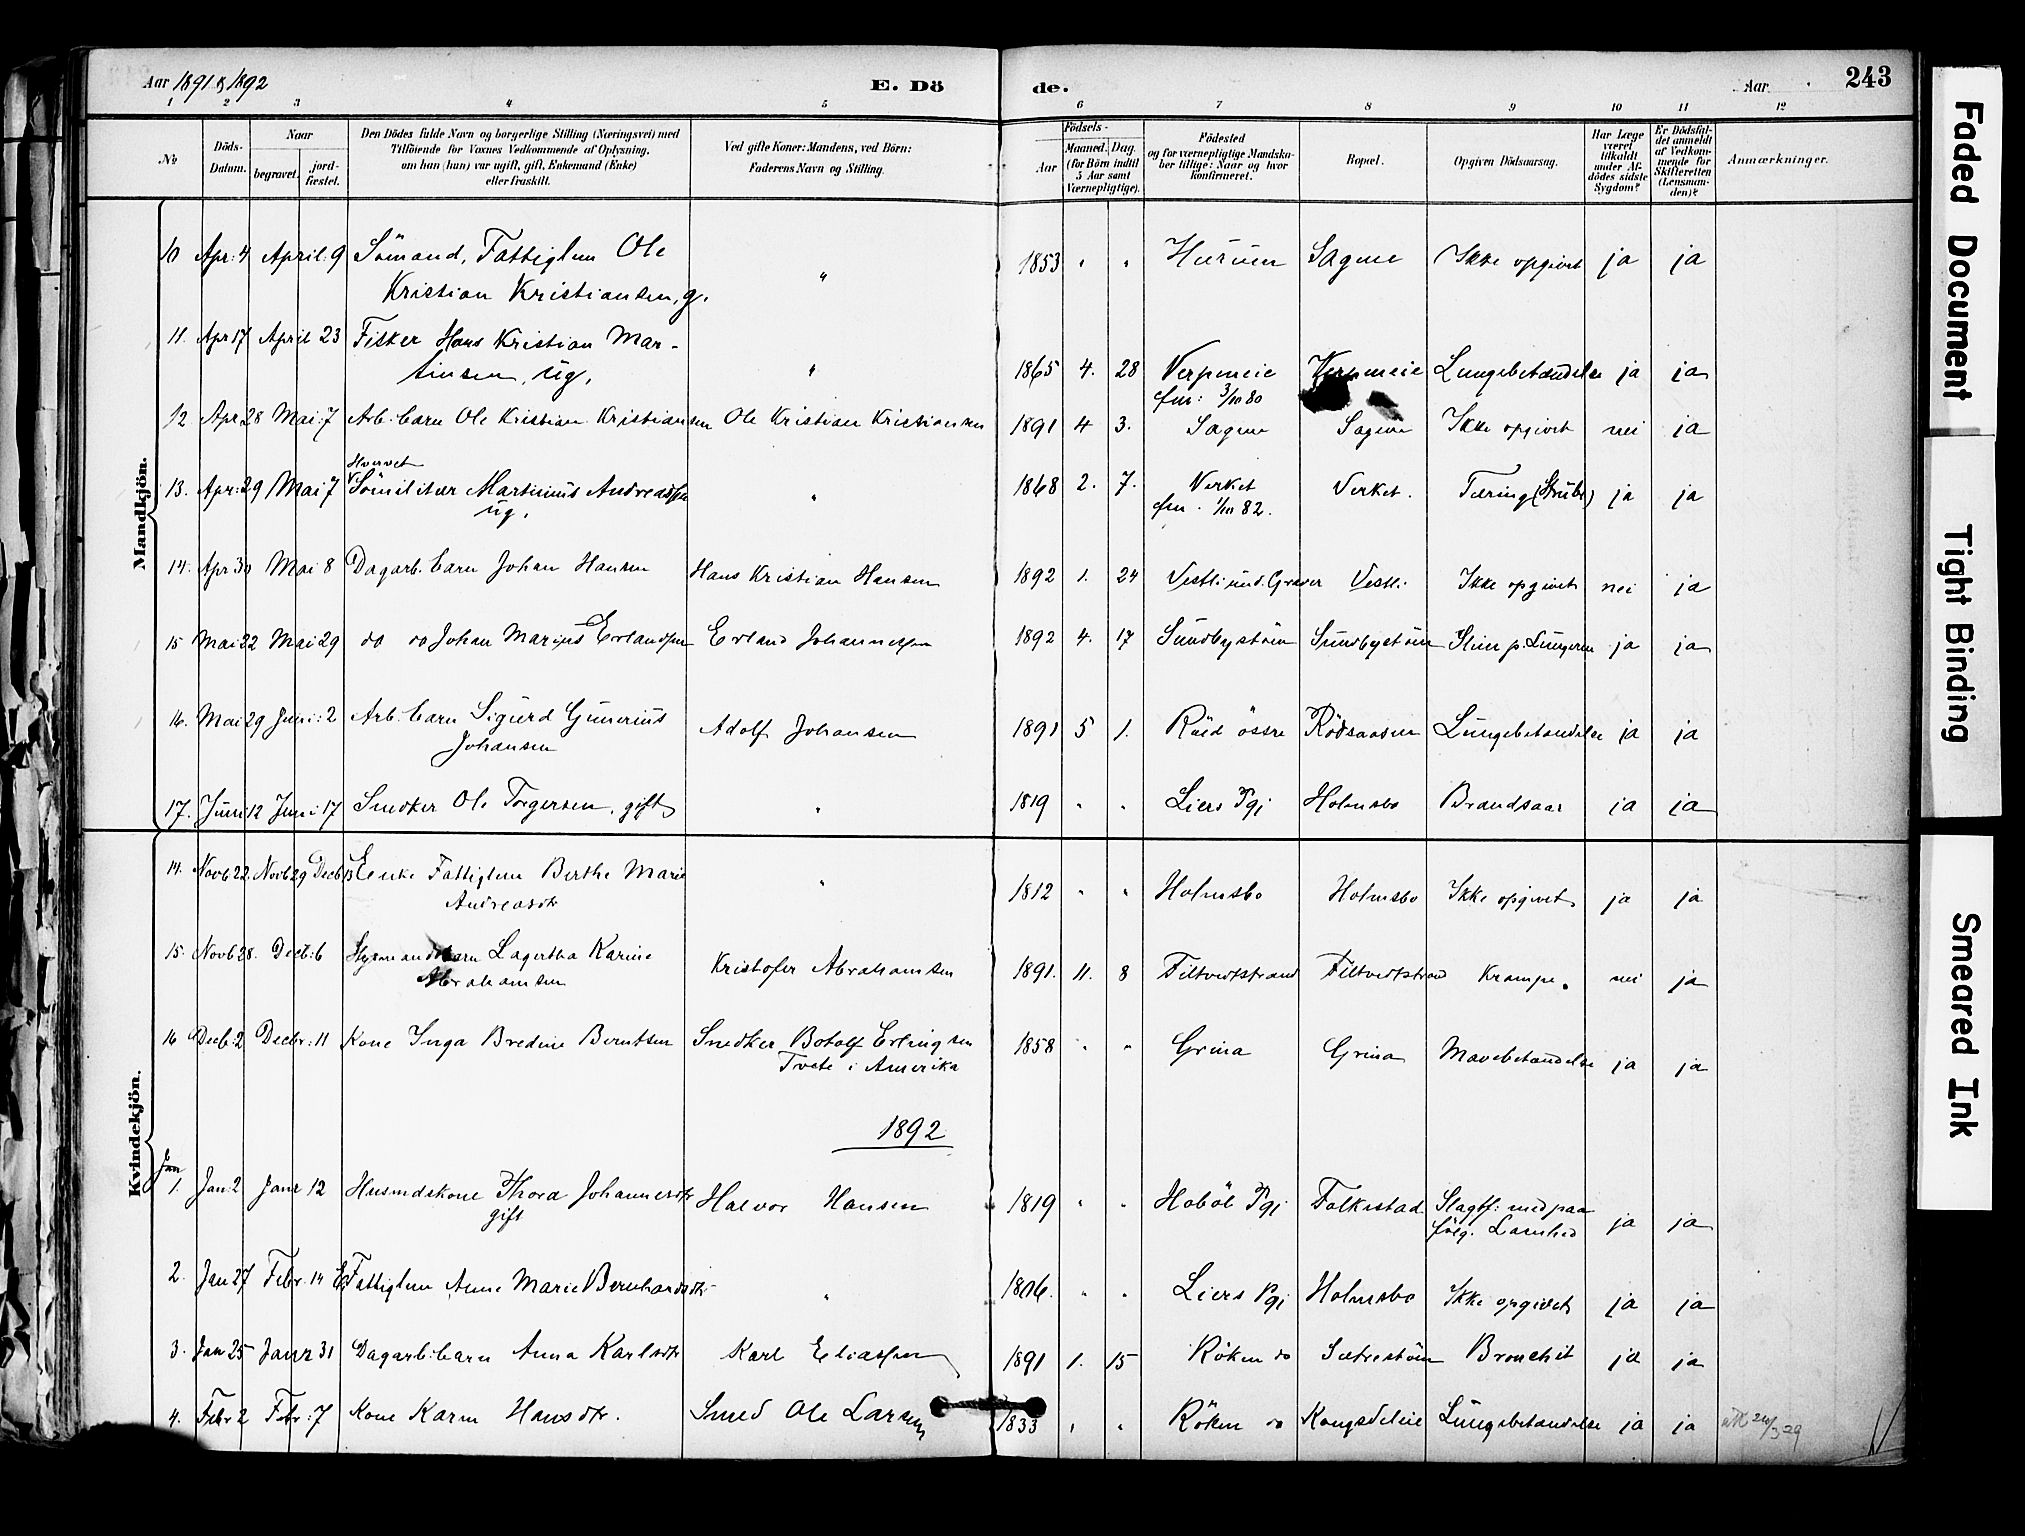 Aar 1891 & 1892 E. Dö de. Aar 243
1 2 3 4 5 6 7 8 9 10 11 12
No
Döds-Datum.
Naar
begravet.
jord-fæstet.
Den Dödes fulde Navn og borgerlige Stilling (Næringsvei) med
Tilföiende for Voxnes Vedkommende af Oplysning,
om han (hun) var ugift, gift, Enkemand (Enke)
eller fraskilt.
Ved gifte Koner: Mandens, ved Börn:
Faderens Navn og Stilling.
Födsels-
Aar
Maaned. Dag.
(for Börn indtil
5 Aar samt
Værnepligtige).
Födested
og for værnepligtige Mandska-
ber tillige: Naar og hvor
konfirmeret.
Bopæl.
Opgiven Dödsaarsag.
Har Læge
været
tilkaldt
under Af-
dödes sidste
Sygdom?
Er Dödsfal-
det anmeldt
af Vedkom-
mende for
Skifteretten
(Lensman-
den)?
Anmærkninger.
Mandkjön.
10 Apr: 4 April: 9 Sömand, Fattiglem Ole
Kristian Kristiansen, g. " 1853 " " Hurum Sagene Ikke opgivet ja ja
11. Apr 17 April 23 Fisker Hans Kristian Mar-
tinsen, ug. " 1865 4. 28 Verpeneie Verpeneie Lungebetændelse ja ja
cfm: 3/10 80
12 Apr 28 Mai: 7 Arb: barn Ole Kristian Kristiansen Ole Kristian Kristiansen 1891 4 3. Sagene Sagene Ikke opgivet nei ja
Hvervet
13. Apr: 29 Mai 7 Sömilitær Martinius Andreassen " 1868 2. 7. Verket Verket. Tæring (Strube) ja ja
ug. cfm. 1/10 82.
14. Apr 30 Mai 8 Dagarb. barn Johan Hansen Hans Kristian Hansen 1892 1. 24 Vestli und. Graver Vestli Ikke opgivet nei ja
15 Mai 22 Mai 29 do do Johan Marius Erlandsen Erland Johannessen 1892 4. 17 Sundbystöen Sundbystöen Slim p. Lungerne ja ja
16. Mai 29 Juni: 2 Arb: barn Sigurd Gunerius
Johansen Adolf Johansen 1891 5 1. Röed össre Rödsaasen Lungebetændelse ja ja
17. Juni 12 Juni 17 Snedker Ole Torgersen, gift " 1819 " " Liers Pgj Holmsbo Brandsaar ja ja
Kvindekjön.
14. Novb 22. Novb 29 Decb 13 Enke Fattiglem Berthe Marie
Andreasdtr " 1812 " " Holmsbo Holmsbo Ikke opgivet ja ja
15. Novb 28. Decb: 6 Styrmandsbarn Lagertha Karine
Abrahamsen Kristofer Abrahamsen 1891. 11. 8 Filtvedtstrand Filtvedtstrand Krampe. nei ja
16 Decb: 2 Decbr: 11 Kone Inga Bredine Berntsen Snedker Botolf Erlingsen
Tvete i Amerika 1858 " " Grina Grina Mavebetændelse ja ja
1892
1. Jan: 2 Janr 12 Husmdskone Thora Johannesdtr
gift Halvor Hansen 1819 " " Hoböl Pgj Folkestad Slagtf: med paa
fölg. Lamhed ja ja
2. Jan 27 Febr. 14 E. Fattiglem Anne Marie Bernhardsdtr " 1806. " " Liers Pgj Holmsbo Ikke opgivet ja ja
3. Jan 25 Janr 31 Dagarb: barn Anna Karlsdtr Karl Eliassen 1891 1. 15 Röken do Sætrestöen Bronchit ja ja
4. Febr 2 Febr: 7 Kone Karen Hansdtr. Smed Ole Larsen 1833 " " Röken do Kongsdeleie Lungebetændelse ja ja
Faded Document
Tight Binding
Smeared Ink